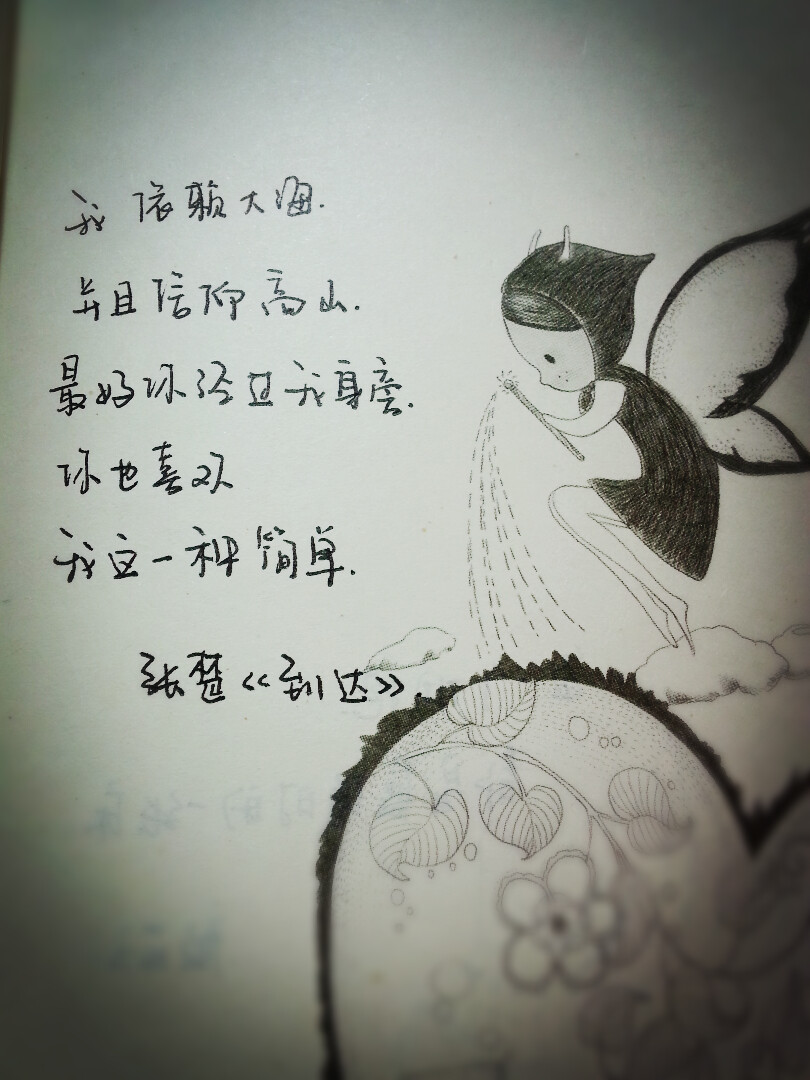 我依赖大海.
并且信仰高山.
最好你经过我身旁.
你也喜欢
我这一种简单.
张楚《到达》.